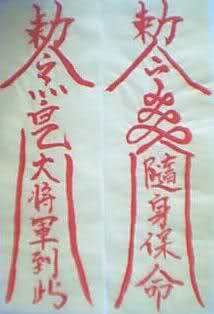 勅令
隨身保命
勅令
大将軍到此